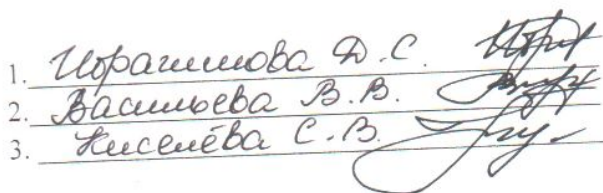 1. Ибрагимова Д.С.
2. Васильева В.В.
3. Киселёва С.В.